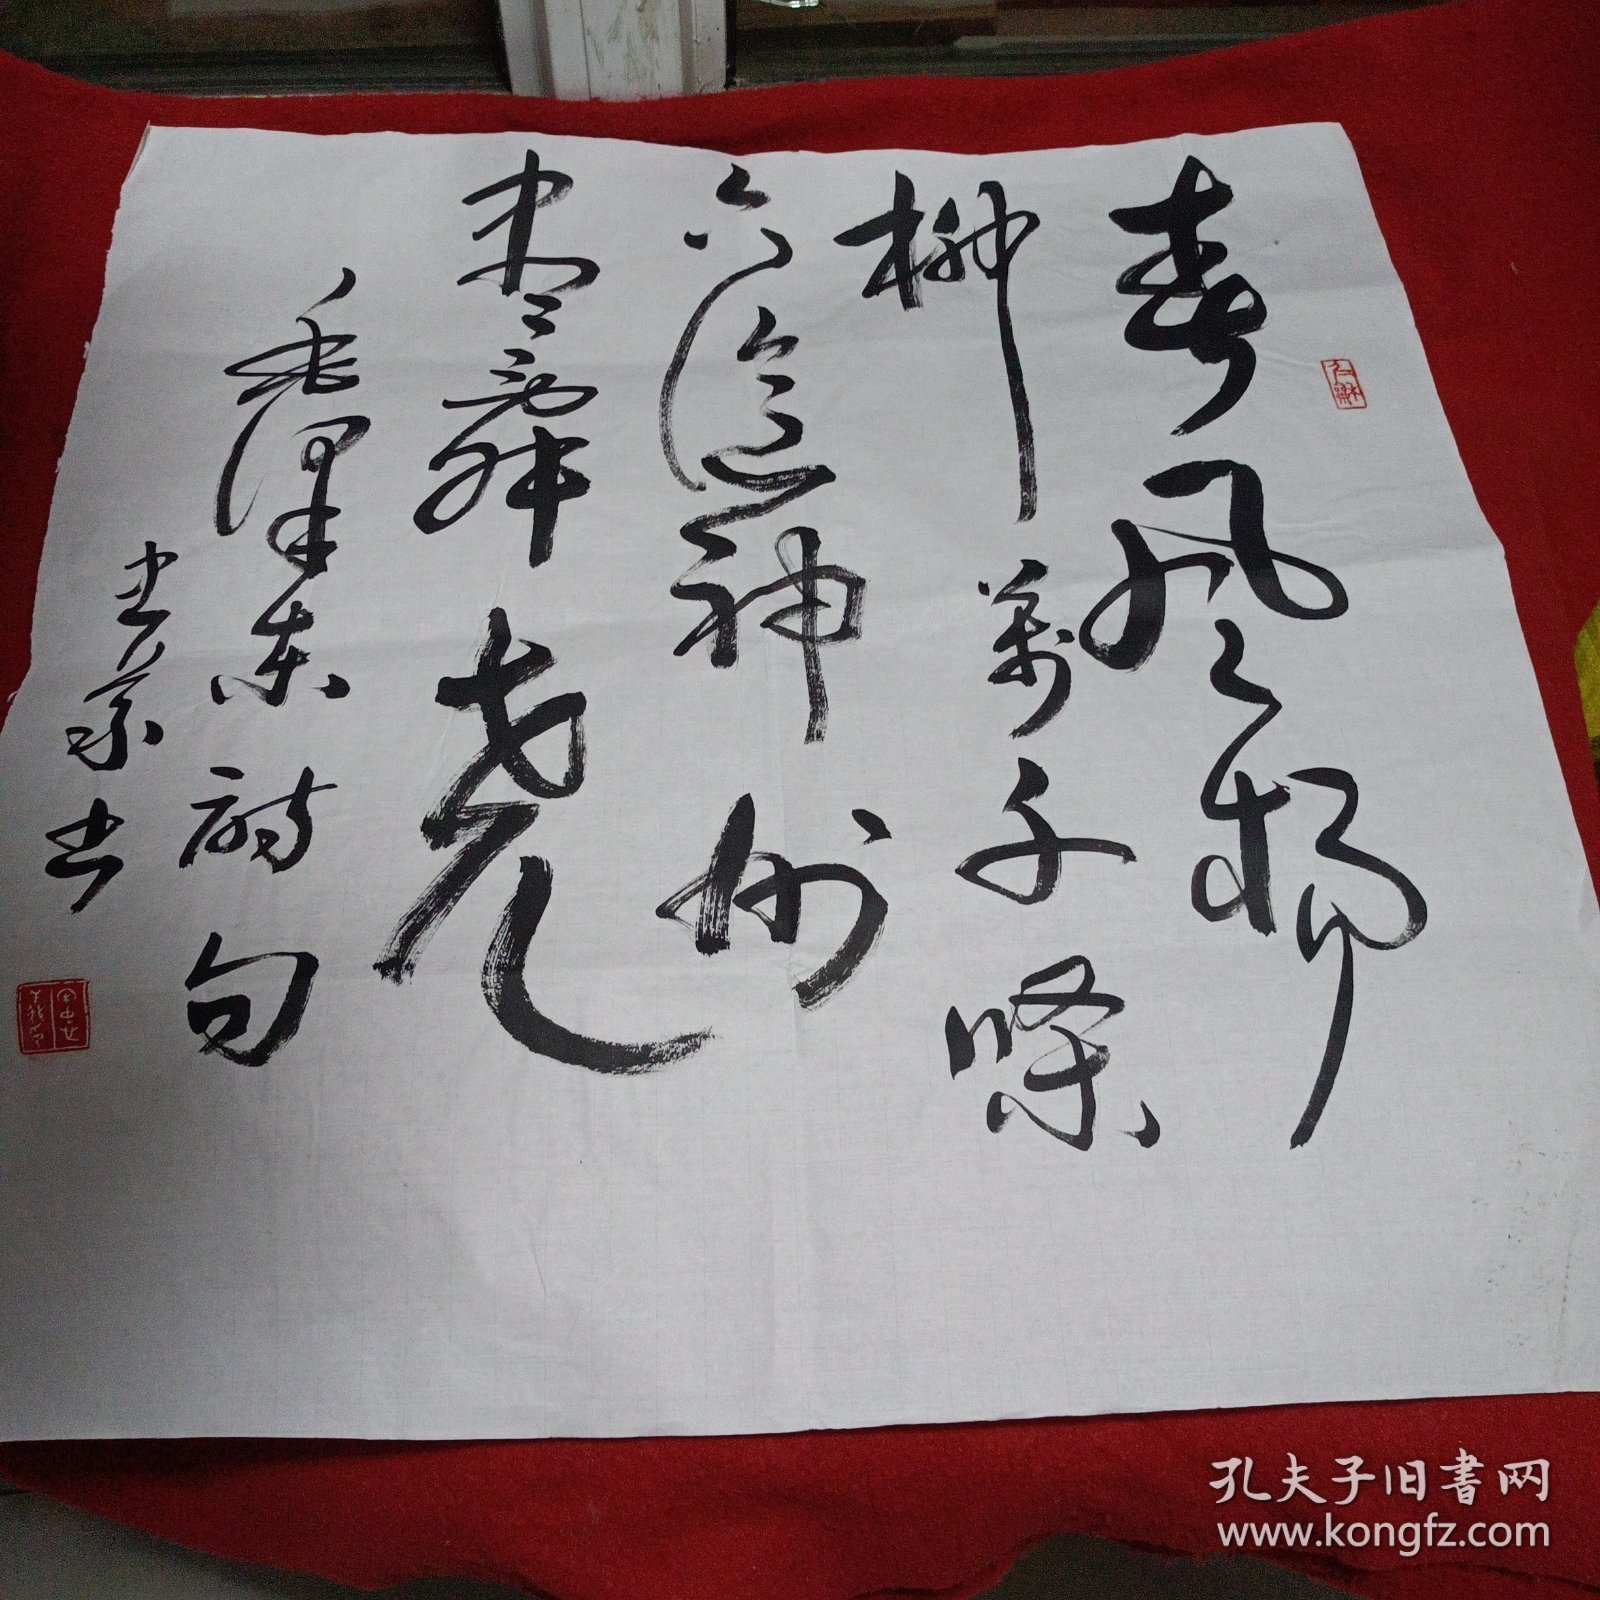 春风杨
柳万千條
六億神州
尽舜尧
毛澤东詩句
书
孔夫子旧书网
www.kongfz.com